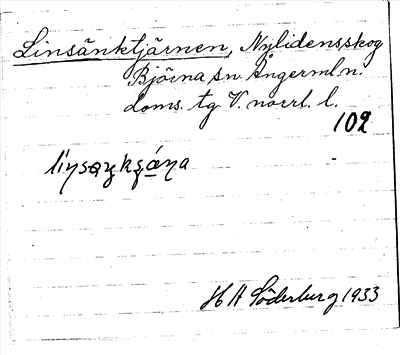 Linsänktjärnen, Nylidens skog
Björna sn. Ångerml. n.
doms. tg V. norrl. l.
102
H A Söderberg 1933